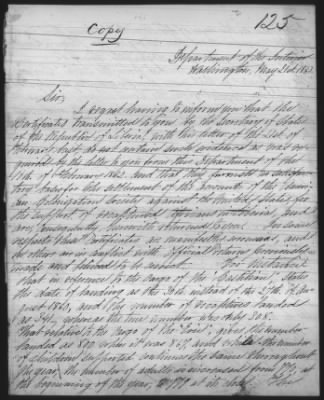 125
Copy
Department of the Interior
Washington, May 2nd 1863.
Sir,
I regret having to inform you that the
Certificates transmitted to you by the Secretary of State
of the Republic of Liberia, with his letter of the 21st of
February last do not contain such evidence as was re-
quired by the letter to you from this Department of the
of February 1862 and that they furnish no satisfac-
tory basis for the settlement of the accounts of the
Colonization Society against the United States for
the support of recaptured Africans in Liberia, and
are, consequently herewith returned to you. In some
respects these Certificates are manifestly erroneous, and
in others are in conflict with official returns previously
made and believed to be correct. For instance:
that in reference to the cargo of the "Castilian" states
the date of landing as the 30th instead of the 27th of
1860, and the number of recaptives landed
as whereas the true number was 308.
That relative to the cargo of the gives the number
landed as when it was 867, and while the number
of children supported continues the same throughout
the year, the number of adults is increased from
the beginning of the year, to 779 at its close. The